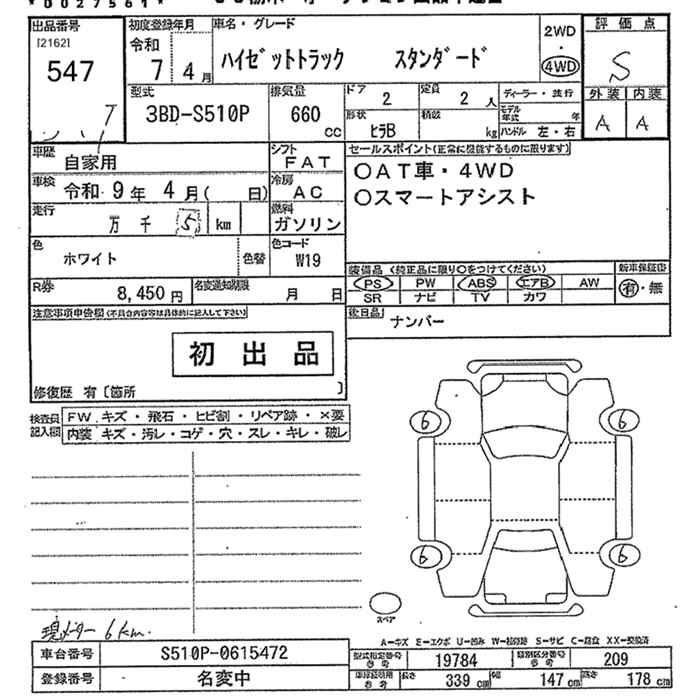 *0027561*
出品番号
[21621]
547
初度登録年月
令和
7年 4月
車名・グレード
ハイゼットトラック スタンダード
2WD
・
4WD
評価点
S
外装 内装
A A
型式
3BD-S510P
排気量
660
CC
ドア
2
定員
2 人
形状
ヒラB
積載
kg
ディーラー・並行
モデル年式 年
ハンドル 左・右
車歴
自家用
シフト
FAT
車検
令和 9年 4月( 日)
冷房
AC
走行
万 千 5 km
燃料
ガソリン
色
ホワイト
色替
色コード
W19
R券
8,450 円
名変通知期限
月 日
セールスポイント(正常に機能するものに限ります)
○AT車・4WD
○スマートアシスト
装備品 (純正品に限り○をつけてください)
PS PW ABS エアB AW
SR ナビ TV カワ
新車保証書
有・無
後日品
ナンバー
注意事項申告欄(不具合内容等は具体的に記入して下さい)
初出品
修復歴 有〔箇所 〕
検査員記入欄
FW キズ・飛石・ヒビ割・リペア跡・×要
内装 キズ・汚レ・コゲ・穴・スレ・キレ・破レ
6 6
6 6
スペア
現メーター 6km.
A-キズ E-エクボ U-凹み W-補修跡 S-サビ C-腐食 XX-交換済
車台番号
S510P-0615472
登録番号
名変中
型式指定番号
参考
19784
類別区分番号
参考
209
車検証明用
参考
長さ
339 cm
幅
147 cm
高さ
178 cm